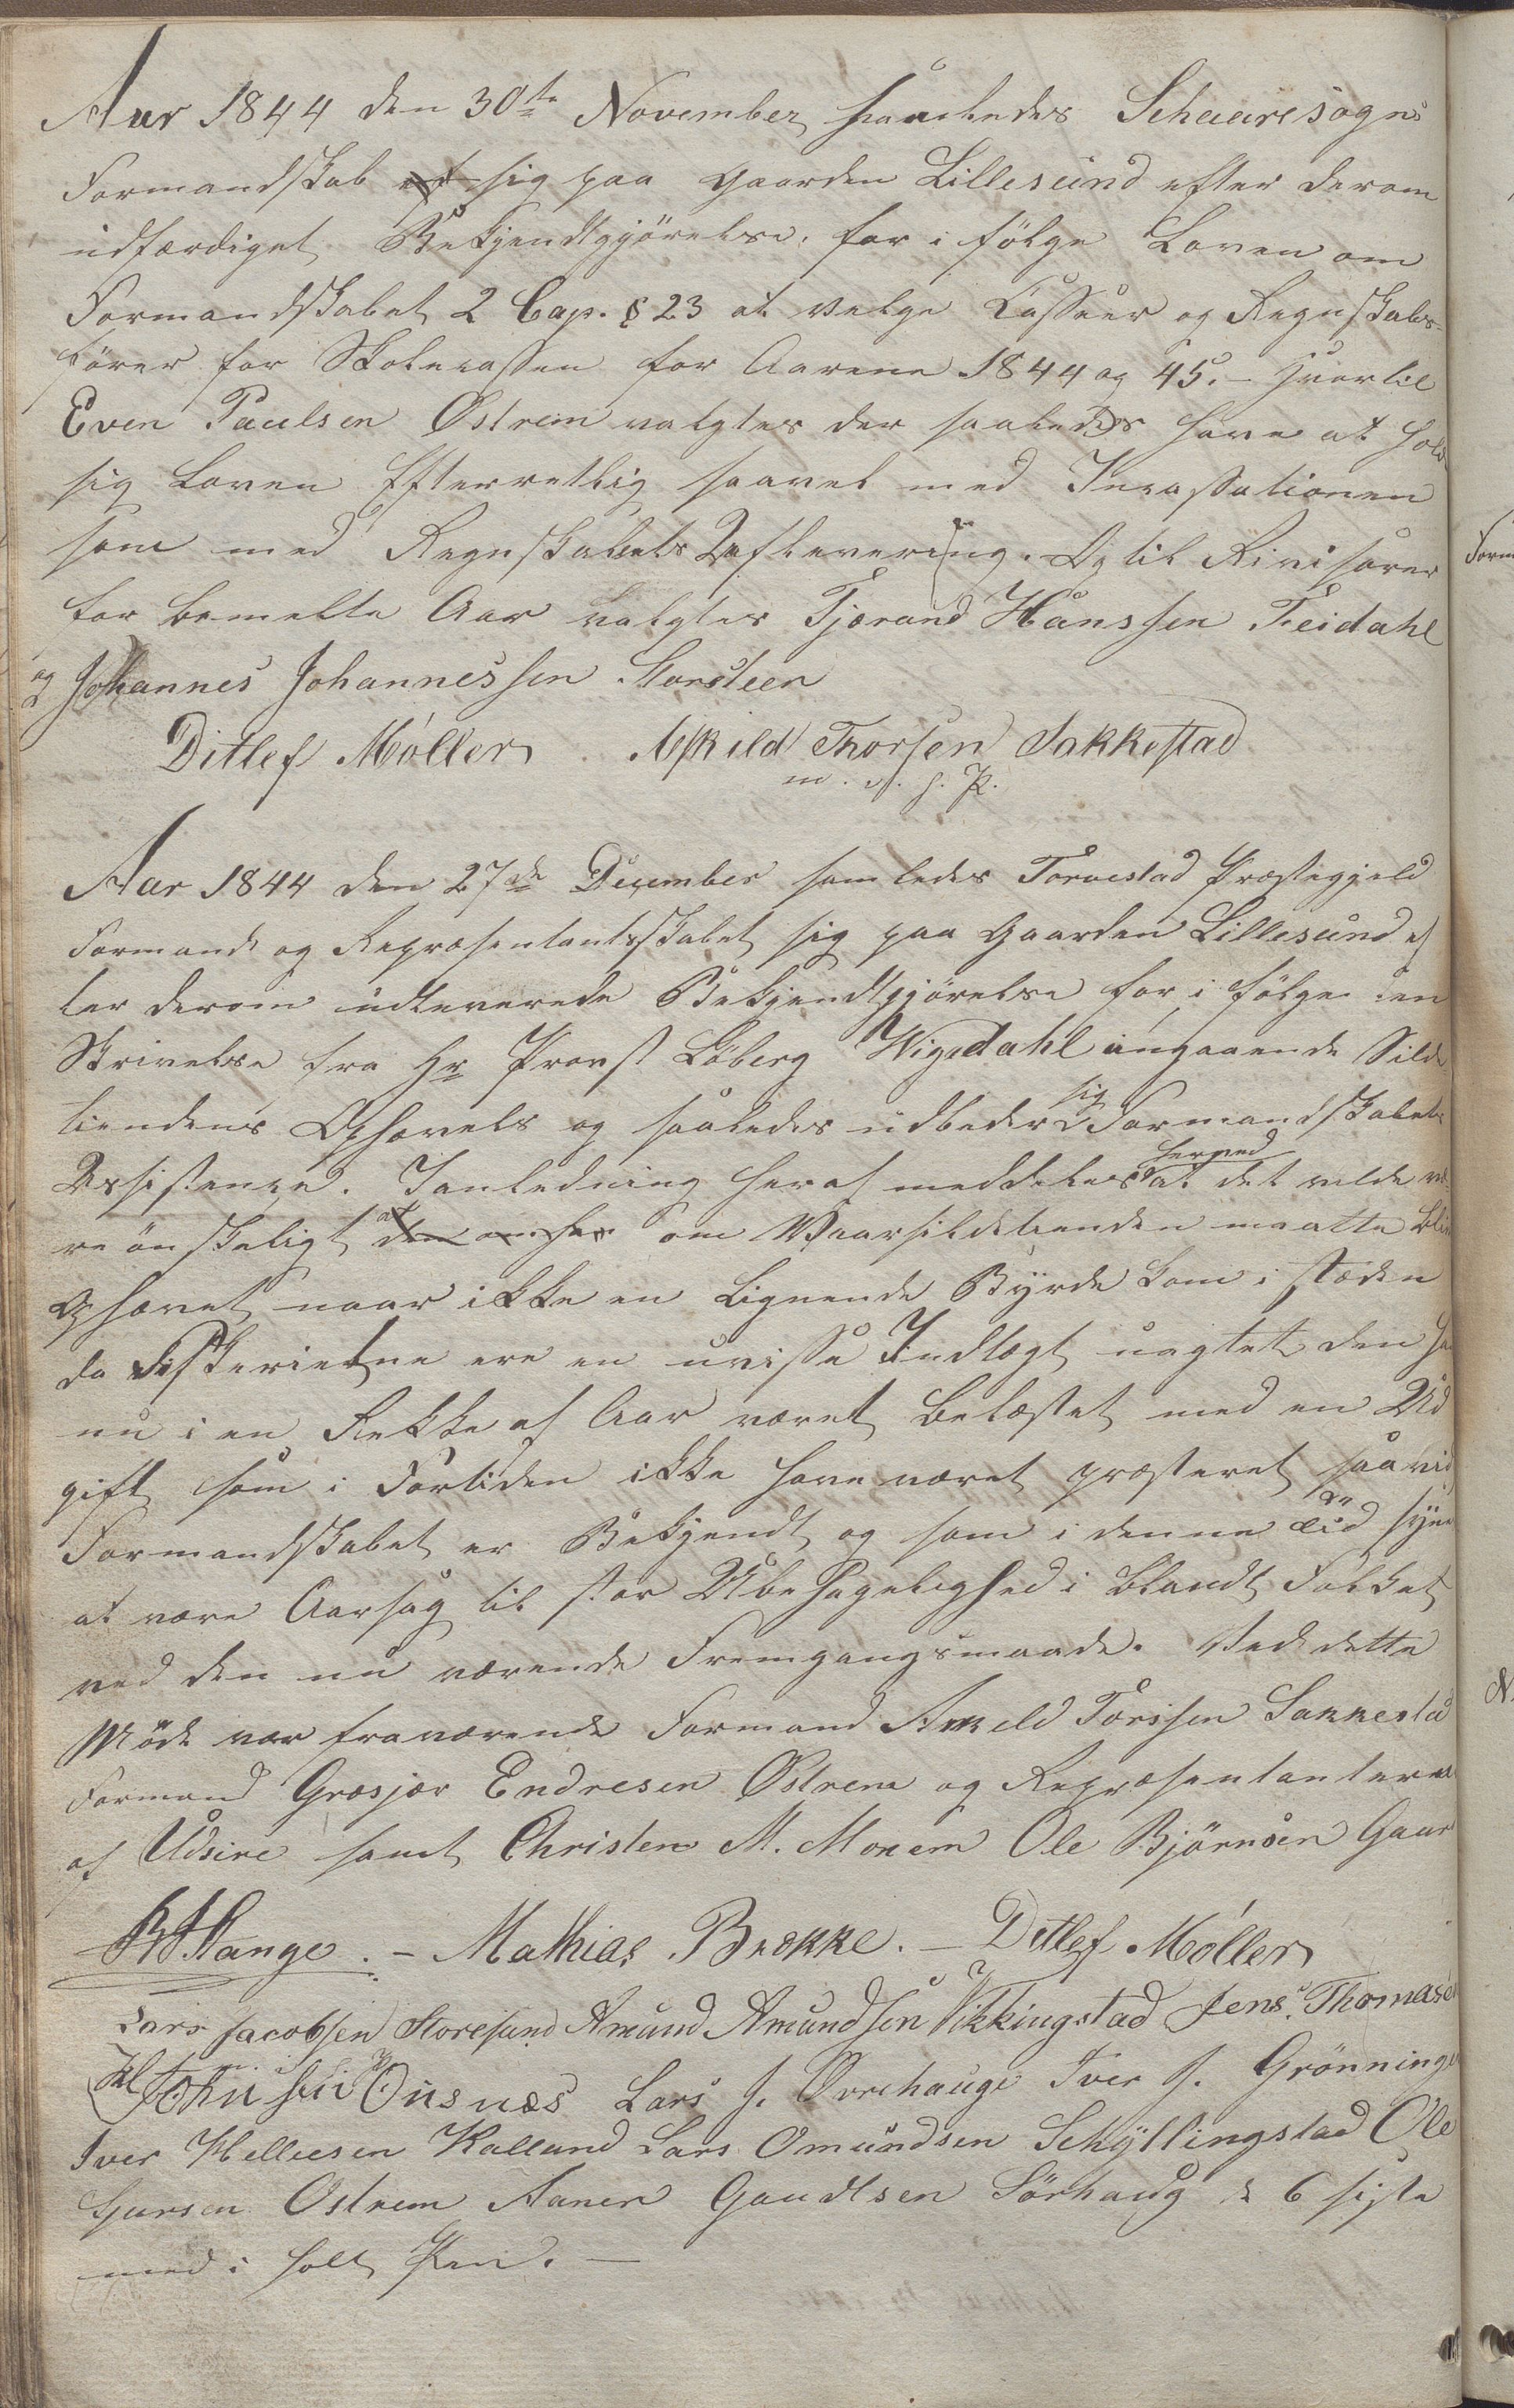 Aar 1844 den 30te November saamledes Schaaresogns
Formandskab sig paa Gaarden Lillesund efter derom
udfærdiget Bekjendtgjörelse, for i fölge Loven om
Formandskabet 2 Cap. § 23 at velge Casseer og Regnskabs-
förer for Skolecassen for Aarene 1844 og 45. - Hvortil
Even Paulsen Østrem valgtes der saaledes have at hold
sig Loven Efterretlig saavel med Incassationen
som med Regnskabets Aflevering. Og til Rivisorer
for bemelte Aar valgtes Tjærand Hanssen Feidahl
og Johannes Johannessen Storsteen
Ditlef Möller Askild Thorsen Sakkestad
m. i. h. P.
Aar 1844 den 27de December samledes Torvestad Præstegjeld
Formands og Repræsentantskabet sig paa Gaarden Lillesund ef
ter derom udleverede Bekjendtgjörelse for i fölge en
Skrivelse fra Hr Provst Löberg Wigedahl angaaende Silde
tiendens Ophævels og saaledes udbeder sig Formandskabets
Assistence. I anledning heraf meddeles herved at det vilde væ
re önskeligt om Vaarsildetienden maatte bliv
Ophævet naar ikke en Lignende Byrde kom i stæden
da Fiskerierne ere en uvisse Indtægt uagtet den ha
nu i en Rekke af Aar været Belæstet med en Ud
gift som i Fortiden ikke have været præsteret saavid
Formandskabet er Bekjendt og som i denne Tid syne
at være Aarsag til stor Ubehagelighed i blandt Folket
ved den nu værende Fremgangsmaade. Ved dette
Möde var fraværende Formand Askeld Torssen Sakkestad
Formand Græsjær Endresen Østrem og Repræsentanterne
af Udsire samt Christen M. Monem Ole Björnsen Gaar
Stange. - Mathias Brekke. - Ditlef Möller
Lars Jacobsen Storesund Amund Amundsen Vikkingstad Jens Thomasen
m. i. h. P.
Johnsen Onsnæs Lars J. Ovrehauge Iver J. Grönninge
Iver Helliesen Kalland Lars Omundsen Schyllingstad Ole
Gursen Ostrem Aanen Gaudtsen Sörhaug de 6 siste
med i holt Pen. -
Form
N.